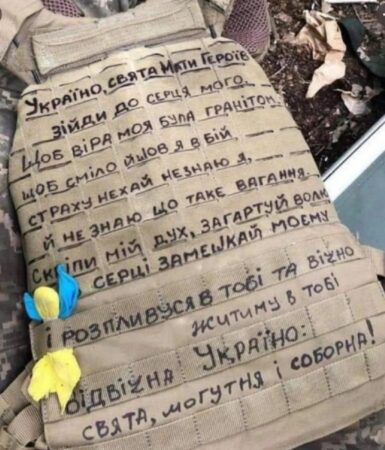 Україно, свята Мати Героїв
зійди до серця мого,
щоб віра моя була гранітом,
щоб сміло йшов я в бій
страху нехай незнаю я,
й не знаю що таке вагання.
Скріпи мій дух, загартуй волю
серці замешкай моєму
і розпливуся в тобі та вічно
житиму в тобі
відвічна Україно:
свята, могутня і соборна!